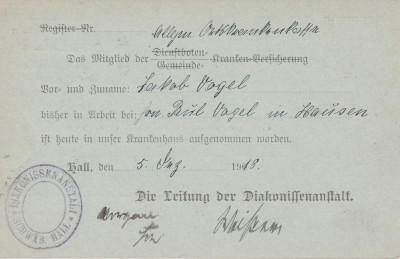 Register-Nr. Allgm. Ortskrankenkasse
Das Mitglied der Dienstboten-
Gemeinde- Kranken-Versicherung
Vor- und Zuname: Jakob Vogel
bisher in Arbeit bei: Vogel in Hausen
ist heute in unser Krankenhaus aufgenommen worden.
Hall, den 5. Dez. 1918.
Die Leitung der Diakonissenanstalt.
DIAKONISSENANSTALT
SCHWÄB. HALL